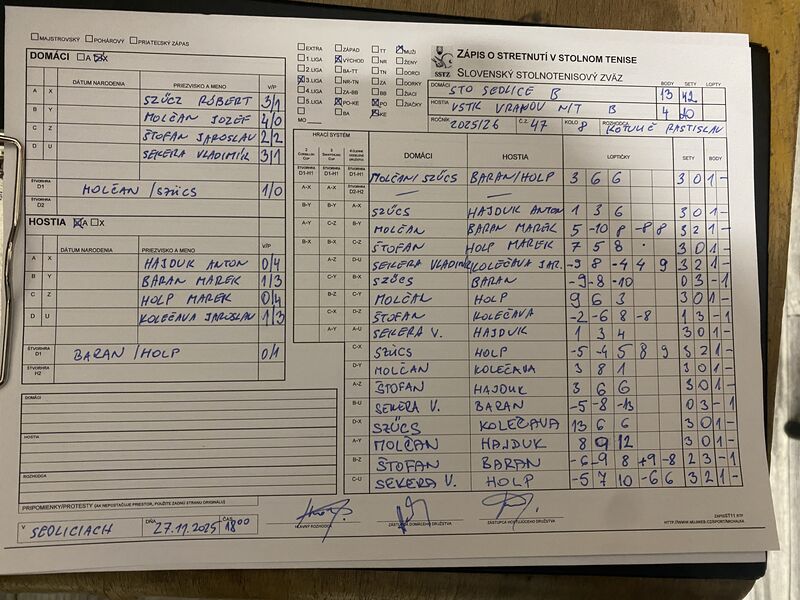 MAJSTROVSKÝ POHÁROVÝ PRIATEĽSKÝ ZÁPAS
DOMÁCI A X
DÁTUM NARODENIA PRIEZVISKO A MENO V/P
A X SZÜCS RÓBERT 3/1
B Y MOLČAN JOZEF 4/0
C Z ŠTOFAN JAROSLAV 2/2
D U SEKERA VLADIMÍR 3/1
ŠTVORHRA D1 MOLČAN/SZÜCS 1/0
ŠTVORHRA D2
HOSTIA A X
DÁTUM NARODENIA PRIEZVISKO A MENO V/P
A X HAJDUK ANTON 0/4
B Y BARAN MAREK 1/3
C Z HOLP MAREK 0/4
D U KOLEČAVA JAROSLAV 1/3
ŠTVORHRA D1 BARAN/HOLP 0/1
ŠTVORHRA H2
DOMÁCI
HOSTIA
ROZHODCA
PRIPOMIENKY/PROTESTY (AK NEPOSTAČUJE PRIESTOR, POUŽITE ZADNÚ STRANU ORIGINÁLU)
V SEDLICIACH DŇA 27.11.2025 ČAS 18:00
EXTRA ZÁPAD TT MUŽI
1.LIGA VÝCHOD NR ŽENY
2.LIGA BA-TT TN DORCI
3.LIGA NR-TN ZA DORKY
4.LIGA ZA-BB BB ŽIACI
5.LIGA PO-KE PO ŽIAČKY
BA KE
MO
SSTZ
ZÁPIS O STRETNUTÍ V STOLNOM TENISE
SLOVENSKÝ STOLNOTENISOVÝ ZVÄZ
BODY SETY LOPTY
DOMÁCI STO SEDLICE B 13 42
HOSTIA VSTK VRANOV N/T B 4 20
ROČNÍK 2025/26 Č.Z. 47 KOLO 8 ROZHODCA KOTULIČ RASTISLAV
HRACÍ SYSTÉM DOMÁCI HOSTIA LOPTIČKY SETY BODY
D1-H1 D1-H1 D1-H1 MOLČAN/SZÜCS BARAN/HOLP 3 6 6 3 0 1 -
A-X A-X D2-H2 —
B-Y B-Y A-X SZÜCS HAJDUK ANTON 1 3 6 3 0 1 -
A-Y C-Z B-Y MOLČAN BARAN MAREK 5 -10 8 -8 8 3 2 1 -
B-X B-X C-Z ŠTOFAN HOLP MAREK 7 5 8 3 0 1 -
A-Z D-U SEKERA VLADIMÍR KOLEČAVA JAR. -9 8 -4 4 9 3 2 1 -
C-Y B-X SZÜCS BARAN -9 -8 -10 0 3 - 1
B-Z C-Y MOLČAN HOLP 9 6 3 3 0 1 -
C-X D-Z ŠTOFAN KOLEČAVA -2 -6 8 -8 1 3 - 1
A-Y A-U SEKERA V. HAJDUK 1 3 4 3 0 1 -
C-X SZÜCS HOLP -5 -4 5 8 9 3 2 1 -
D-Y MOLČAN KOLEČAVA 3 8 1 3 0 1 -
A-Z ŠTOFAN HAJDUK 3 6 6 3 0 1 -
B-U SEKERA V. BARAN -5 -8 -13 0 3 - 1
D-X SZÜCS KOLEČAVA 13 6 6 3 0 1 -
A-Y MOLČAN HAJDUK 8 9 12 3 0 1 -
B-Z ŠTOFAN BARAN -6 -9 8 +9 -8 2 3 - 1
C-U SEKERA V. HOLP -5 7 10 -6 6 3 2 1 -
HLAVNÝ ROZHODCA ZÁSTUPCA DOMÁCEHO DRUŽSTVA ZÁSTUPCA HOSŤUJÚCEHO DRUŽSTVA
ZAPISST11.RTF